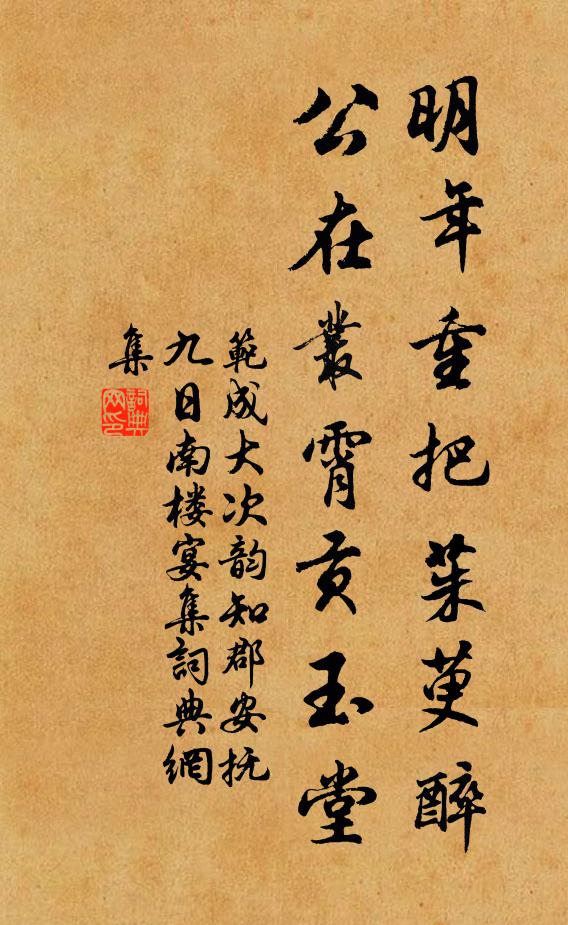 明年重把茱萸醉
公在叢霄貢玉堂
範成大次韵知郡安抚
九日南楼宴集詞典網
集
詞典網印